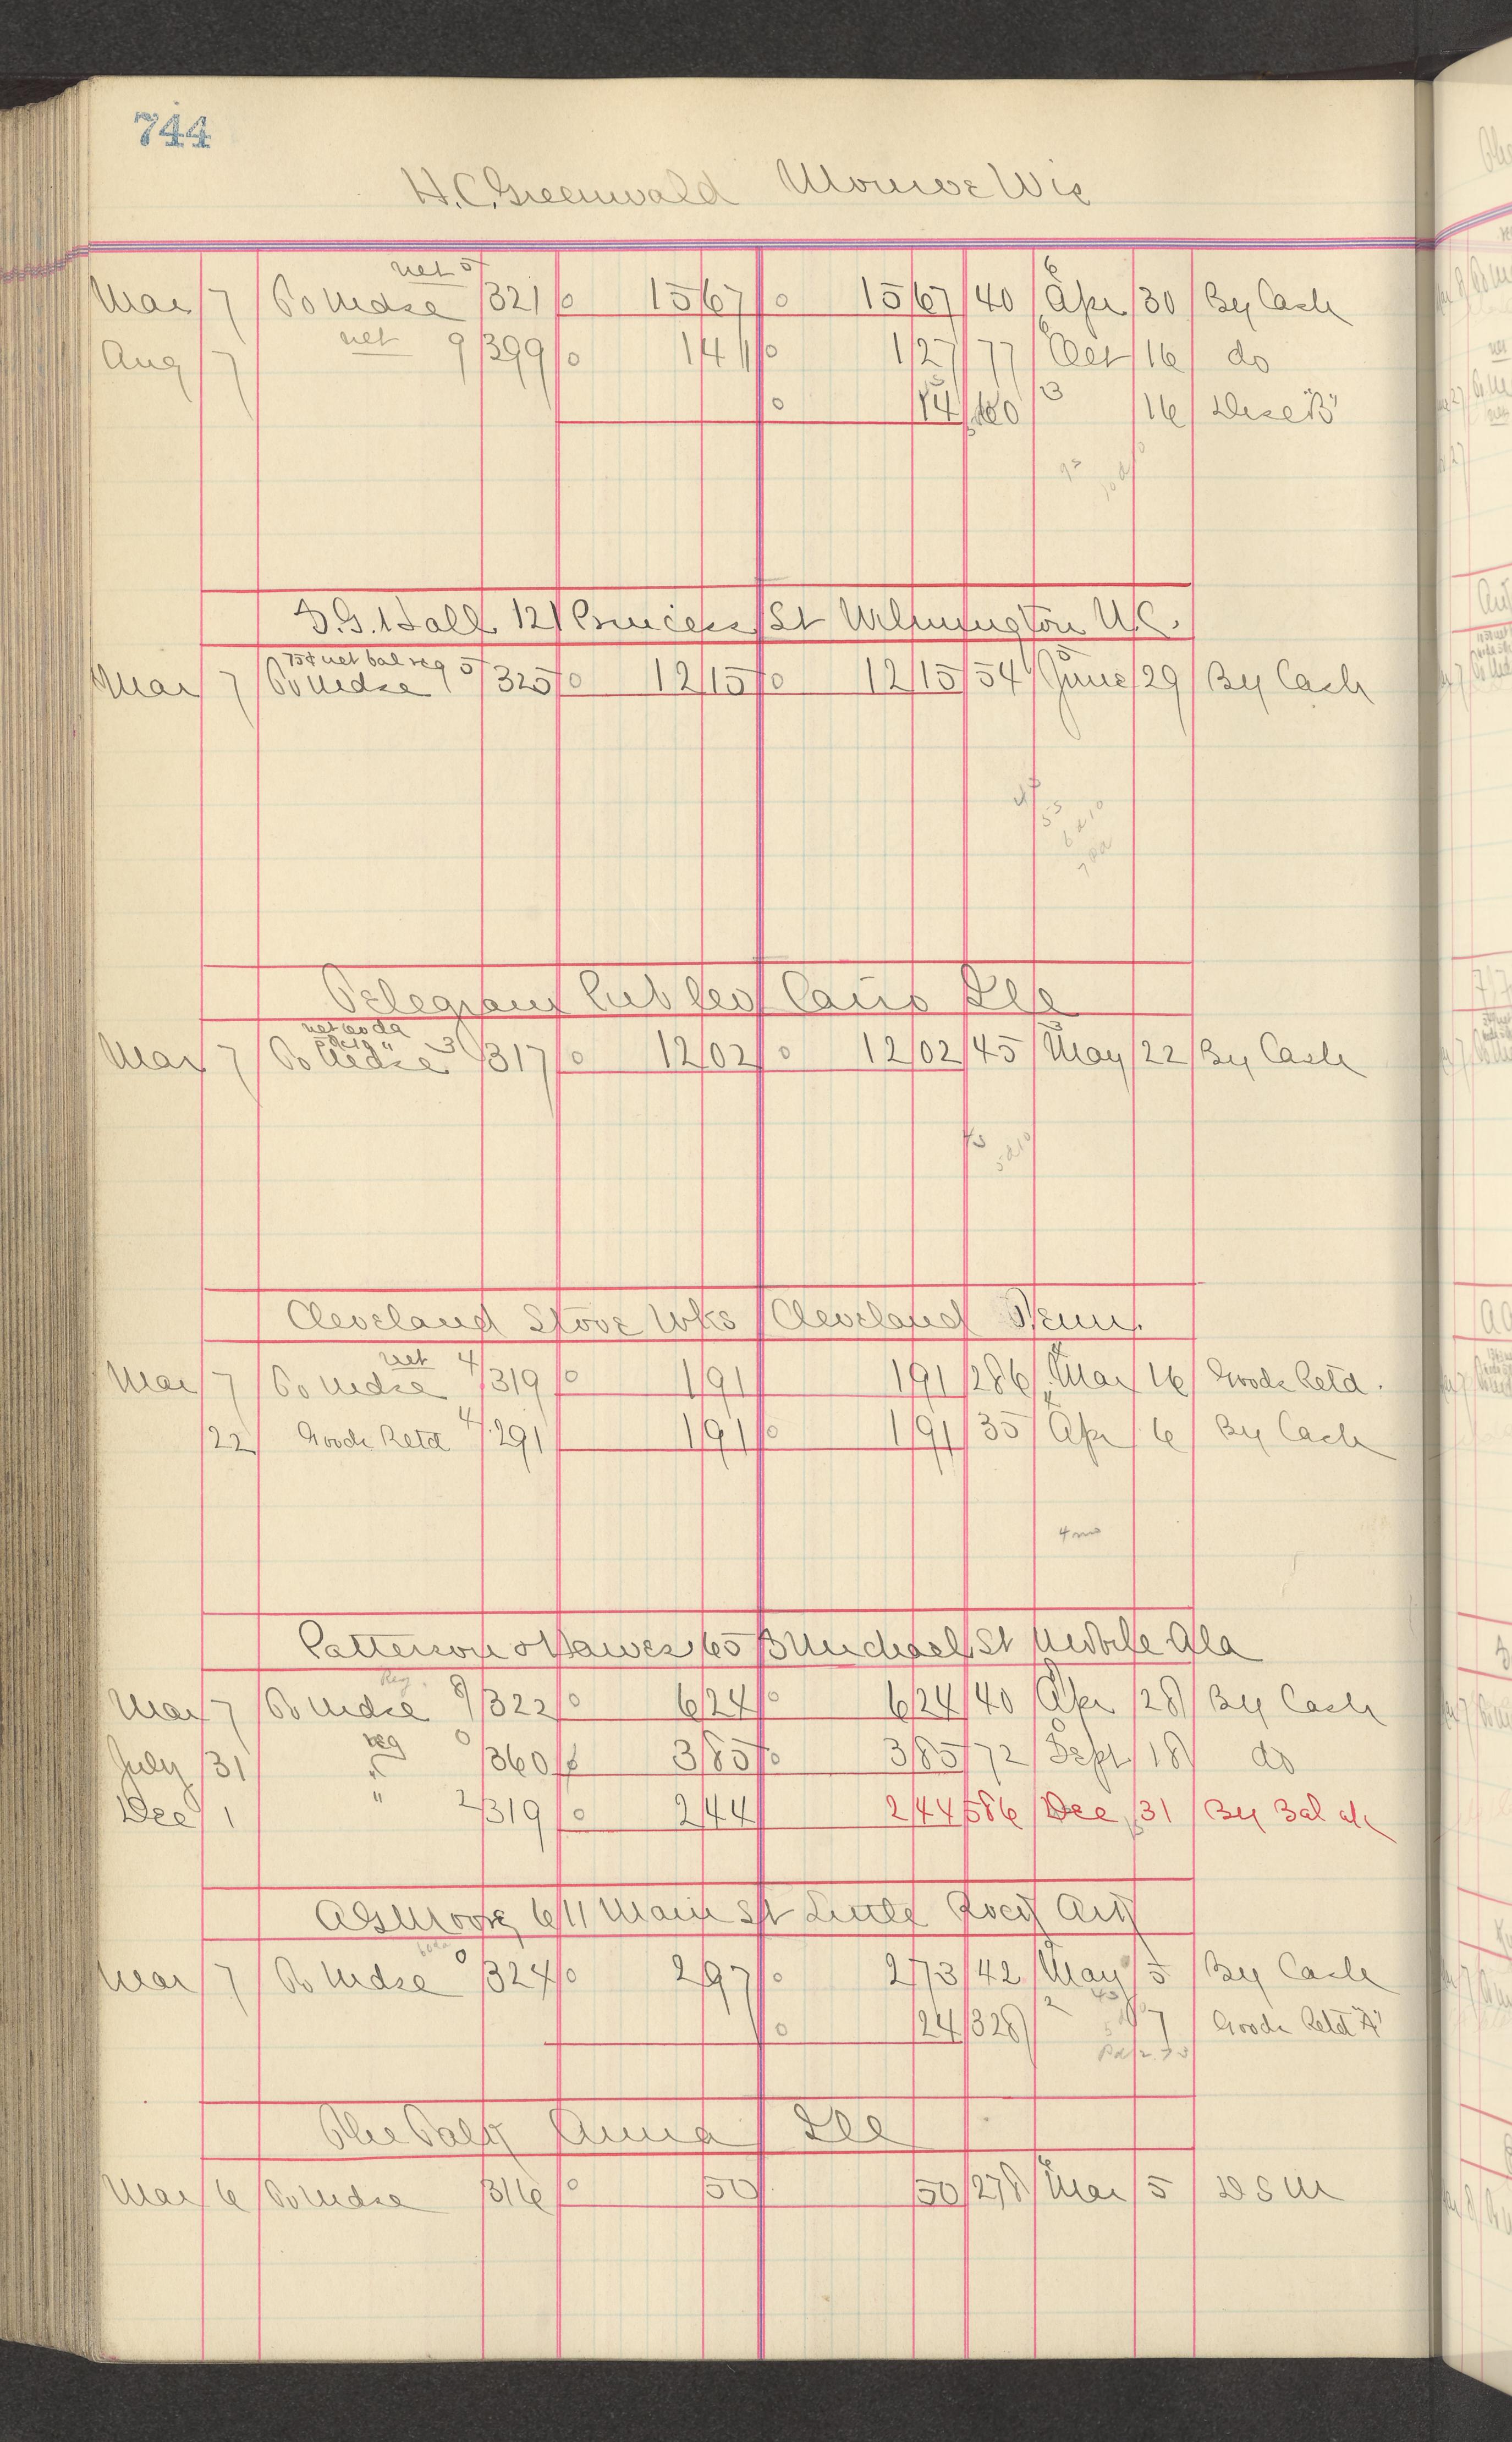 744
H.C. Greenwald Monroe Wis
net 5
Mar 7 To Mdse 321 0 1567 0 1567 40 6 Apr 30 By Cash
Aug 7 net 9 399 0 141 0 127 77 Oct 16 do
0 14 180 13 16 Disc "B"
D.G. Hall 121 Princess St Wilmington N.C.
75¢ net bal reg 5
Mar 7 To Mdse 325 0 1215 0 1215 54 5 June 29 By Cash
Telegram Pub Co Cairo Ill
Mar 7 To Mdse 3 317 0 1202 0 1202 45 3 May 22 By Cash
Cleveland Stove Wks Cleveland Tenn.
net 4
Mar 7 To Mdse 319 0 191 191 286 Mar 16 Goods Retd.
22 Goods Retd 4 291 191 0 191 35 Apr 6 By Cash
4mo
Patterson & Hawes 65 St Michael St Mobile Ala
Reg.
Mar 7 To Mdse 8 322 0 624 0 624 40 Apr 28 By Cash
July 31 reg " 0 360 385 0 385 72 Sept 18 do
Dec 1 " 2 319 0 244 244 586 Dec 31 By Bal a/c
A G Moore 611 Main St Little Rock Ark
Mar 7 To Mdse 0 324 0 297 0 273 42 May 5 By Cash
0 24 328 2 7 Goods Retd "A"
The Talk Anna Ill
Mar 6 To Mdse 316 0 50 50 278 6 Mar 5 D S M